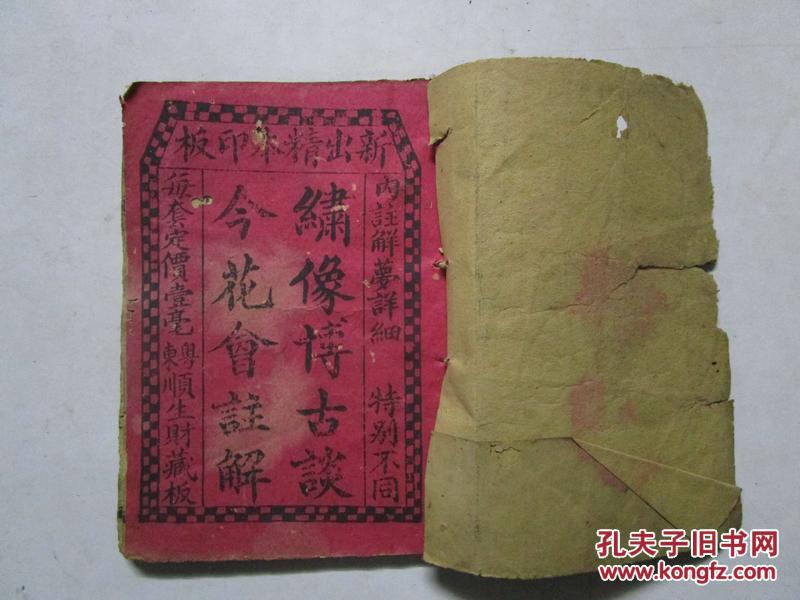 新出精本印板
內註解夢詳細 特别不同
繡像博古談
今花會註解
每套定價壹毫 粵東順生財藏板
孔夫子旧书网
www.kongfz.com